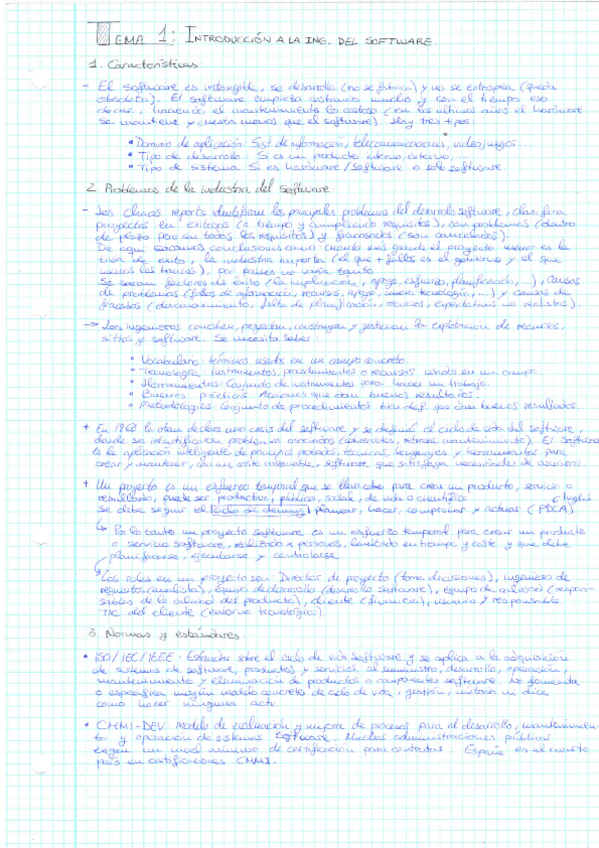 TEMA 1: INTRODUCCIÓN A LA ING. DEL SOFTWARE
1. Características
- El software es intangible, se desarrolla (no se fabrica) y no se estropea (queda
obsoleto). El software empieza costando mucho y con el tiempo eso
decae, haciendo el mantenimiento lo costoso (en los últimos años el hardware
se mantiene y cuesta menos que el software). Hay tres tipos:
• Dominio de aplicación: Sist. de información, telecomunicaciones, videojuegos...
• Tipo de desarrollo: Si es un producto interno, externo, ...
• Tipo de sistema: Si es hardware/software o solo software.
2. Problemas de la industria del software
- Los Chaos reports identifican los principales problemas del desarrollo software, clasifica
proyectos en exitosos (a tiempo y cumpliendo requisitos), con problemas (dentro
de plazo pero sin todos los requisitos) y fracasados (son cancelados).
De aquí sacamos conclusiones como: cuanto más grande el proyecto menor es la
tasa de éxito, la industria importa (el que + fallos es el gobierno y el que
menos los bancos), por países no varía tanto.
Se sacan factores de éxito (la implicación, apoyo, esfuerzo, planificación, ...), causas
de problemas (falta de información, recursos, apoyo, nueva tecnología, ...) y causas de
fracasos (desconocimiento, falta de planificación, recursos, expectativas no realistas).
→ Los ingenieros conciben, proyectan, construyen y gestionan la explotación de recursos,
sitios y software. Se necesita saber:
• Vocabulario: términos usados en un campo concreto.
• Tecnología: Instrumentos, procedimientos o recursos usados en un campo.
• Herramientas: Conjunto de instrumentos para hacer un trabajo.
• Buenas prácticas: Acciones que dan buenos resultados.
• Metodologías: Conjunto de procedimientos bien def. que dan buenos resultados.
+ En 1968 la otan declara una crisis del software y se definió el ciclo de vida del software,
donde se identificaron problemas asociados (retrasos, mantenimiento). El software
es la aplicación inteligente de principios probados, técnicas, lenguajes y herramientas para
crear y mantener, con un coste razonable, software que satisfaga necesidades de usuarios.
+ Un proyecto es un esfuerzo temporal que se lleva a cabo para crear un producto, servicio o
resultado, puede ser productivo, público, social, de vida o científico
Se debe seguir el ciclo de deming: planear, hacer, comprobar y actuar (PDCA) Inglés
↳ Por lo tanto un proyecto software es un esfuerzo temporal para crear un producto
o servicio software, realizado x personas, limitado en tiempo y coste y que debe
planificarse, ejecutarse y controlarse.
Los roles en un proyecto son: Director de proyecto (toma decisiones), ingeniero de
requisitos (analista), equipo de desarrollo (desarrolla software), equipo de calidad (respon-
sables de la calidad del producto), cliente (financiera), usuario y responsable
TIC del cliente (entorno tecnológico)
3. Normas y estándares
• ISO/IEC/IEEE: Estándar sobre el ciclo de vida software y se aplica a la adquisición
de sistemas de software, productos y servicios, al suministro, desarrollo, operación,
mantenimiento y eliminación de productos o componentes software. No fomenta
o especifica ningún modelo concreto de ciclo de vida, gestión, método ni dice
como hacer ninguna activ.
• CMMI-DEV: Modelo de evaluación y mejora de procesos para el desarrollo, mantenimien-
to y operación de sistemas software. Muchas administraciones públicas
exigen un nivel mínimo de certificación para contratar. España es el cuarto
país en certificaciones CMMI.